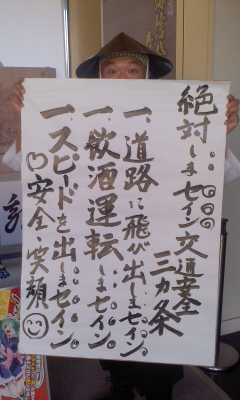 絶対しま・・・セイン交通安全
三カ条
一、道路に飛び出しま・・・セイン
一、飲酒運転しま・・・セイン
一、スピードを出しま・・・セイン
安全・笑顔